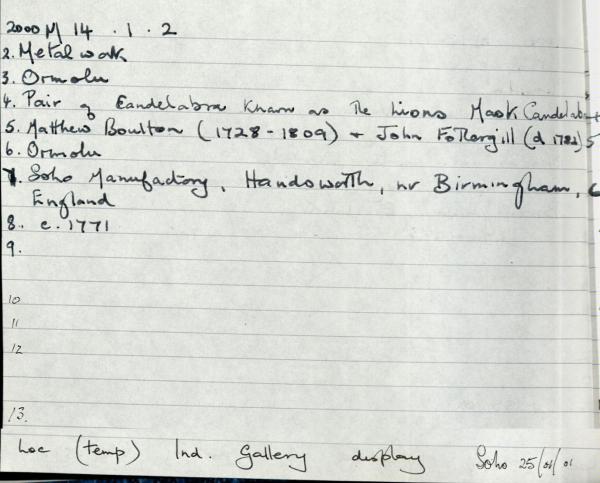 2000 M 14 . 1 . 2
2. Metalwork
3. Ormolu
4. Pair of Candelabra known as the Lions Mask Candelab
5. Matthew Boulton (1728-1809) + John Fothergill (d 1782) 5
6. Ormolu
7. Soho Manufactory, Handsworth, nr Birmingham,
England
8. c. 1771
9.
10
11
12
13.
Loc (temp) Ind. Gallery display Soho 25/01/01